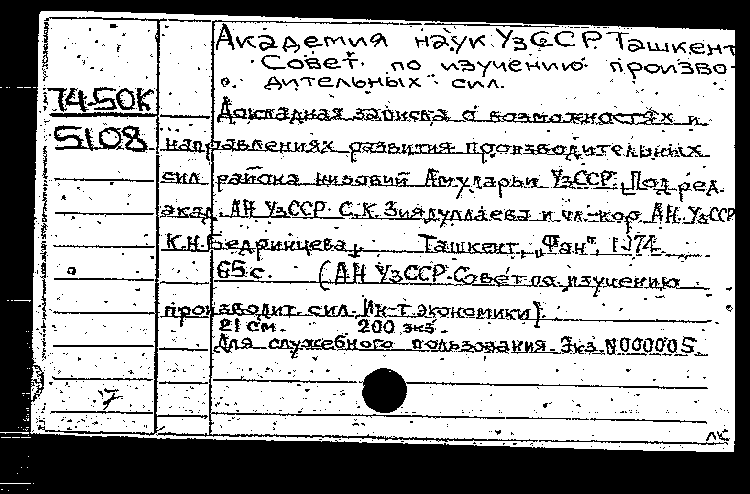 Академия наук УзССР. Ташкент
Совет по изучению произво-
дительных сил.
74-50К
5108
Докладная записка о возможностях и
направлениях развития производительных
сил района низовий Амударьи УзССР. [Под ред.
акад. АН УзССР С.К. Зиядуллаева и чл.-кор. АН УзССР
К.Н. Бедринцева]. Ташкент, „Фан", 1974.
65 с. (АН УзССР. Совет по изучению
производит. сил. Ин-т экономики)
21 см. 200 экз.
Для служебного пользования. Экз. N000005.
7